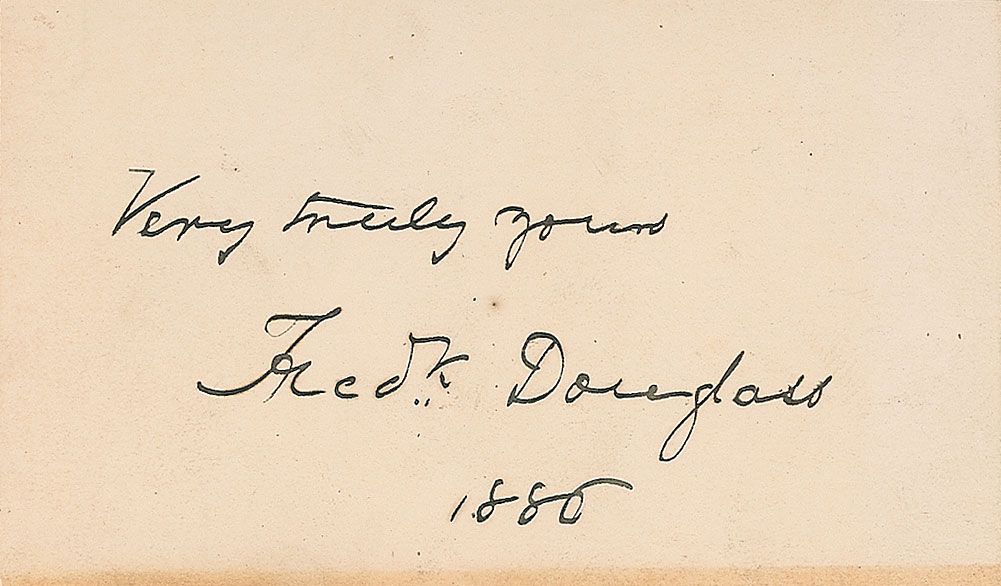 Very truly yours
Fredk.. Douglass
1885